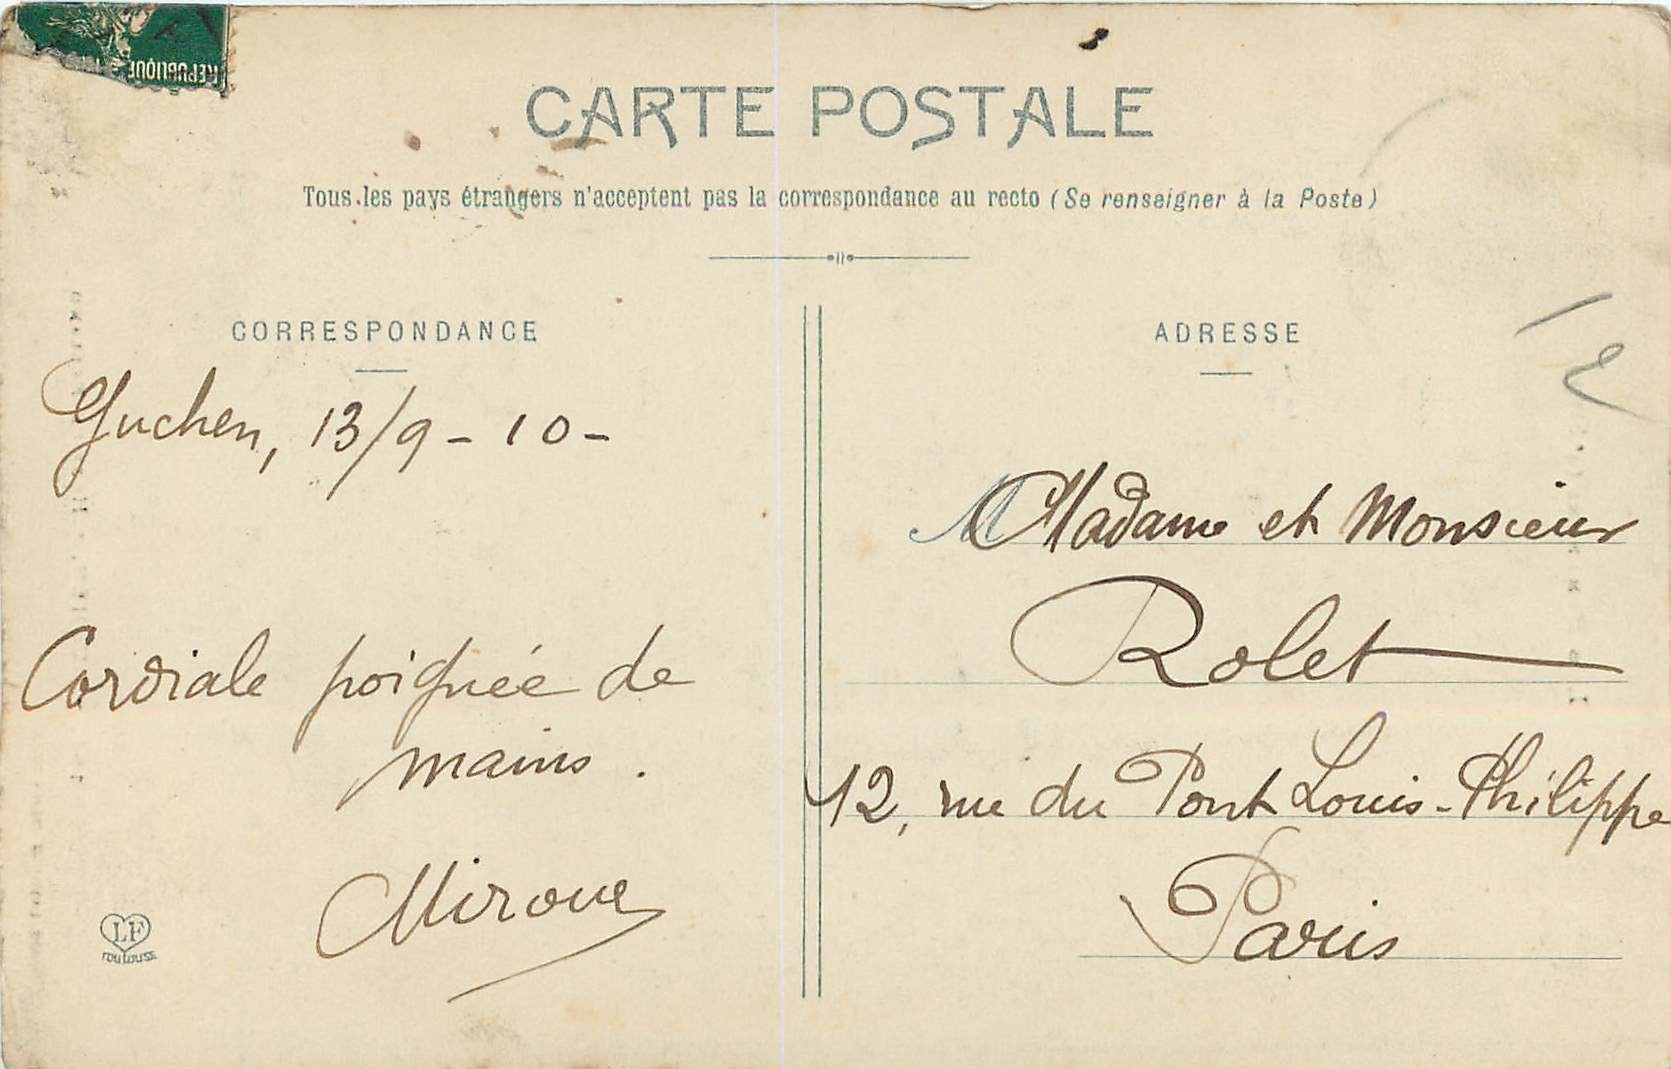 RÉPUBLIQUE
CARTE POSTALE
Tous les pays étrangers n'acceptent pas la correspondance au recto (Se renseigner à la Poste)
CORRESPONDANCE
Guchen, 13/9 - 10 -
Cordiale poignée de
mains.
Miroue
LF
TOULOUSE
ADRESSE
M Madame et Monsieur
Rolet
12, rue du Pont Louis-Philippe
Paris